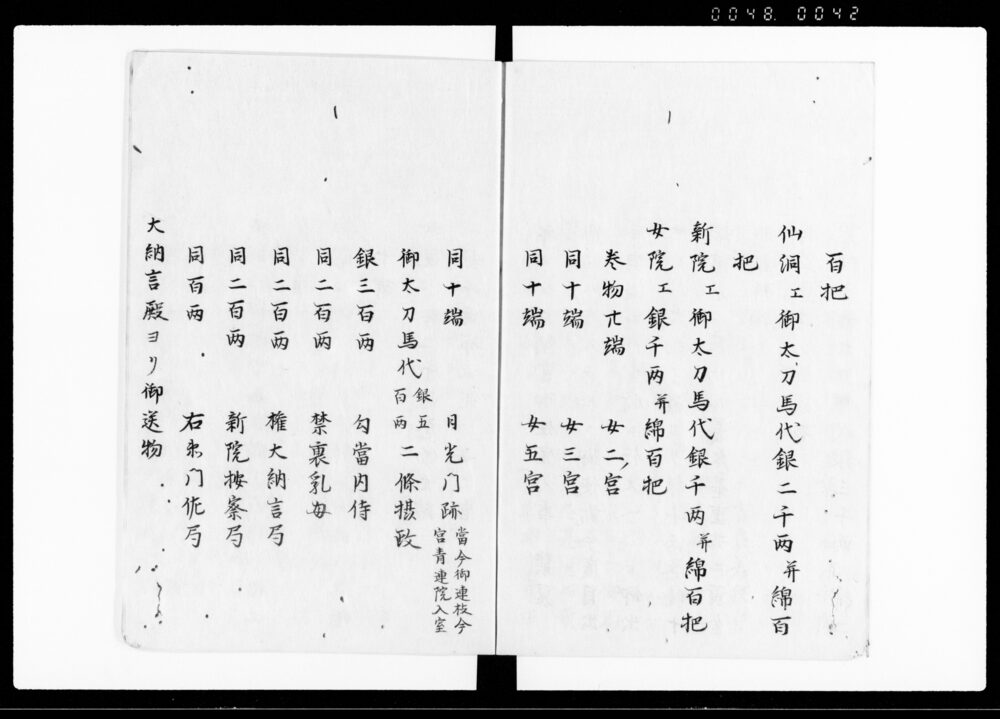 0048. 0042
百把
仙洞エ御太刀馬代銀二千両并綿百
把
新院エ御太刀馬代銀千両并綿百把
女院エ銀千両并綿百把
巻物廿端 女二宮
同十端 女三宮
同十端 女五宮
同十端 日光门跡 當今御連枝今宮青連院入室
御太刀馬代 銀五百両 二條摂政
銀三百両 勾當内侍
同二百両 禁裏乳母
同二百両 権大納言局
同二百両 新院按察局
同百両 右衛门佐局
大納言殿ヨリ御送物